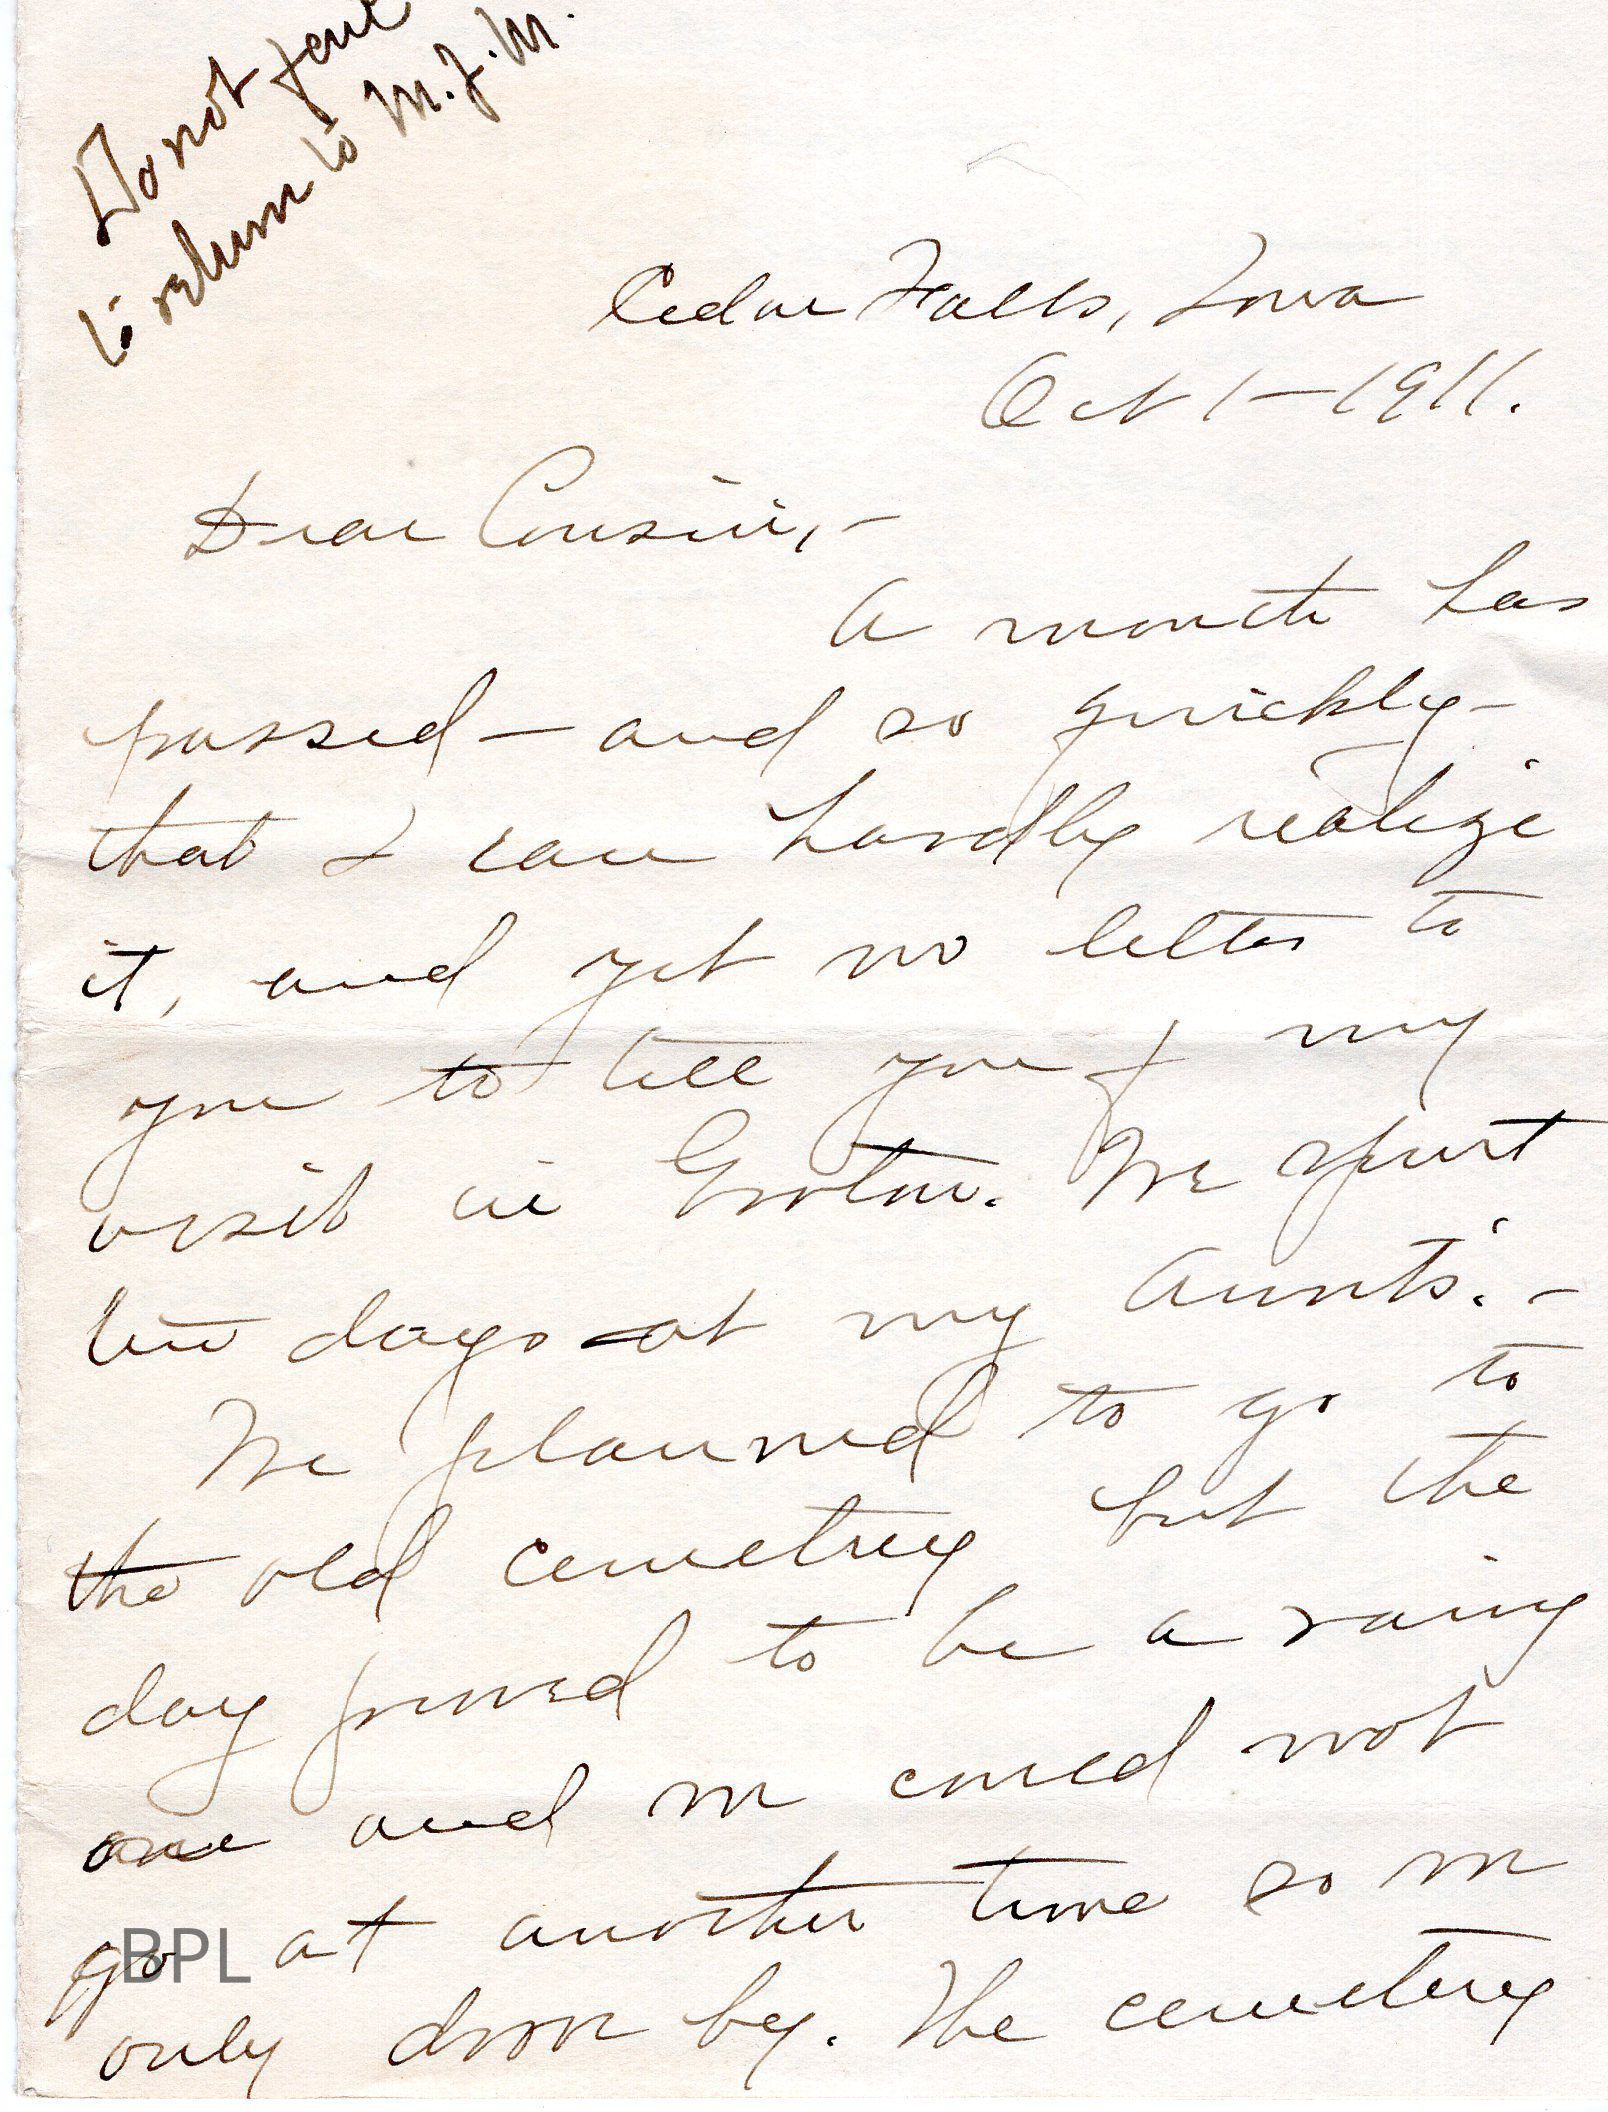 Do not fail
to return to M.J.M.
Cedar Falls, Iowa
Oct 1-1911.
Dear Cousin,-
A month has
passed - and so quickly-
that I can hardly realize
it, and yet no letter to
you to tell you of my
visit in Groton. We spent
two days at my Aunts'.-
We planned to go to
the old cemetery but the
day proved to be a rainy
one and we could not
go at another time so we
only drove by. The cemetery
BPL